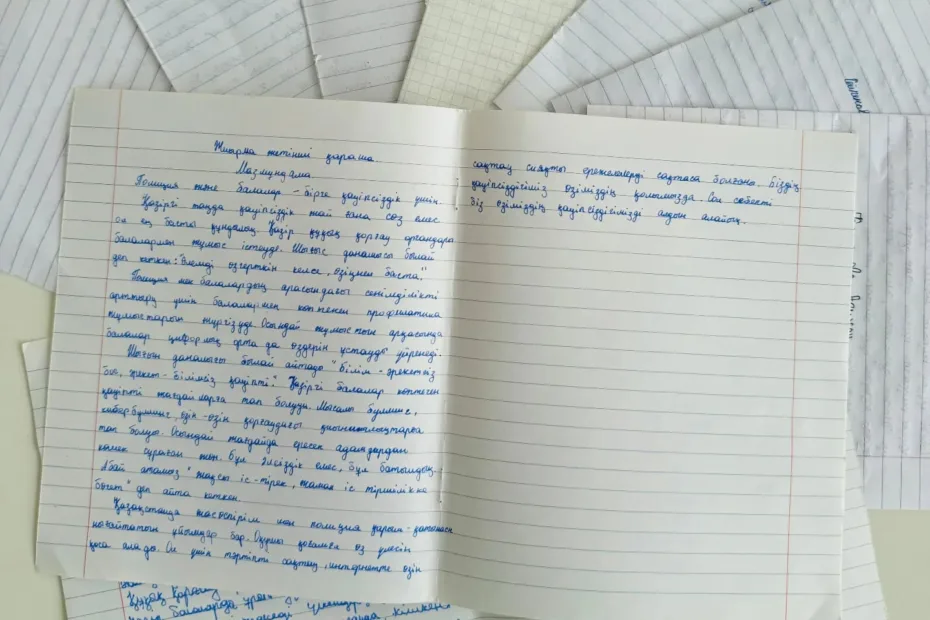 Жиырма жетінші қараша.
Мазмұндама.
Полиция және балалар - бірге қауіпсіздік үшін.
Қазіргі таңда қауіпсіздік жай ғана сөз емес
ол ең басты құндылық. Қазір құқық қорғау органдары
балалармен жұмыс істеуде. Шығыс даналығы былай
деп кеткен: "Әлемді өзгерткің келсе, өзіңнен баста."
Полиция мен балалардың арасындағы сенімділікті
арттыру үшін балалармен көптеген профилактика
жұмыстарын жүргізуде. Осындай жұмыстың арқасында
балалар цифорлық орта да өздерін ұстауды үйренеді.
Шығыс даналығы былай айтады "Білім - әрекетсіз
бос, әрекет - білімсіз қауіпті." Қазіргі балалар көптеген
қауіпті жағдайларға тап болуда. Мысалы буллинг,
кибербуллинг, өзін-өзін қорғаудағы қиыншылықтарға
тап болуы. Осындай жағдайда ересек адамдардан
көмек сұраған жөн. Бұл әлсіздік емес, бұл батылдық.
Абай атамыз "жақсы іс - тірек, жаман іс тіршілікке
бөгет" деп айта кеткен.
Қазақстанда жасөспірім мен полиция қарым-қатынасын
нығайтатын ұйымдар бар. Оқушы қоғамға өз үлесін
қоса алады. Ол үшін тәртіпті сақтау, интернетте өзін
сақтау сияқты ережелерді сақтаса болғаны. Біздің
қауіпсіздігіміз өзіміздің қолымызда Сол себепті
біз өзіміздің қауіпсіздігімізді алдын алайық.
Құқық қорғау